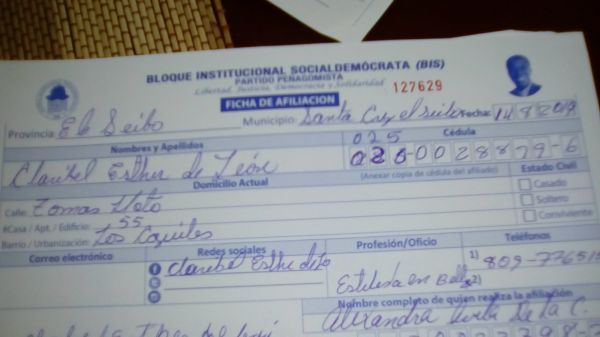 BLOQUE INSTITUCIONAL SOCIALDEMÓCRATA (BIS)
PARTIDO PENAGOMISTA
Libertad, Justicia, Democracia y Solidaridad
127629
FICHA DE AFILIACIÓN
Provincia: El Seibo Municipio: Santa Cruz el Seibo Fecha: 14/8/2019
Nombres y Apellidos Cédula
025
Claribel Esther de León 026-0028879-6
Domicilio Actual (Anexar copia de cédula del afiliado) Estado Civil
Calle: Tomas
Casado
#Casa / Apt. / Edificio: 55
Soltero
Barrio / Urbanización: Los
Conviviente
Correo electrónico Redes sociales Profesión/Oficio Teléfonos
Claribel Esther 1) 809-77651
Estilista en 2)
Nombre completo de quien realiza la afiliación
Alexandra De la C.